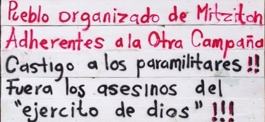 Pueblo organizado de Mitziton
Adherentes a la Otra Campaña
Castigo a los paramilitares !!
Fuera los asesinos del
"ejercito de dios" !!!